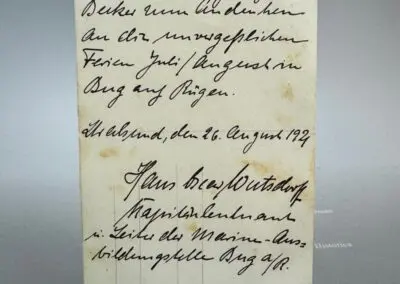 Becker zum Andenken
an die unvergeßlichen
Ferien Juli/August in
Bug auf Rügen.
Stralsund, den 26. August 192
Hans
Kapitänleutnant
u. Leiter der Marine-Aus=
bildungstelle Bug a/R.